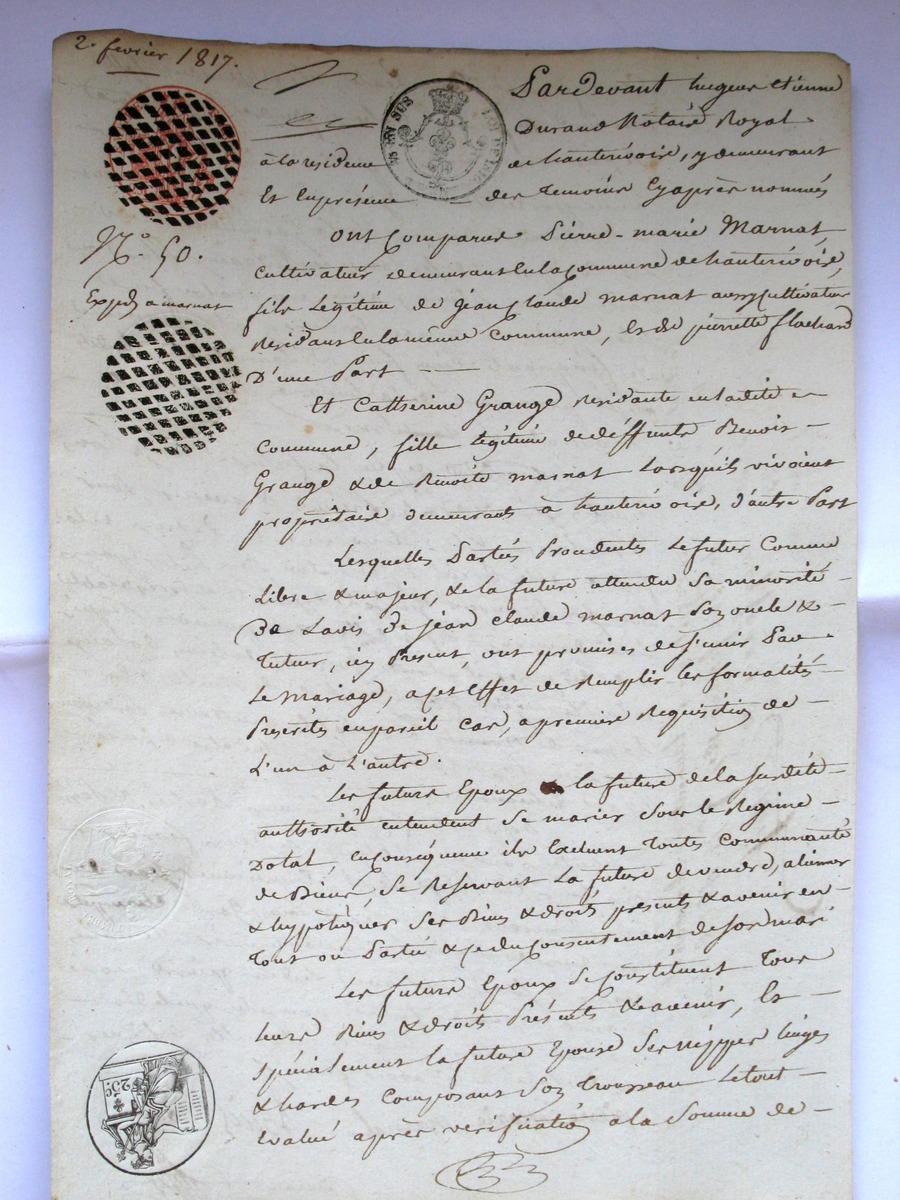 2. fevrier 1817.
Pardevant hugues Etienne
Durand Notaire Royal
à la residence de hauterivoire, y demeurant
Et En présence des Temoins Cyaprès nommés
N.º 50.
Exped. a marnat
Ont Comparus Pierre-marie Marnat
Cultivateur demeurant En la Commune de hauterivoire,
fils Legitime de jean Claude marnat aussy Cultivateur
Residant En la même Commune, Et de pierrette flachard
D'une Part
Et Catherine Grange Residante en ladite
Commune, fille legitime de deffunts Benoit
Grange & de Benoite marnat Lorsqu'ils vivoient
propriétaire demeurants à hauterivoire, d'autre Part
Lesquelles Parties Procedentes Le futur Comme
Libre & majeur, & la future attendu Sa minorité
De L'avis De jean Claude marnat Son oncle &
Tuteur, icy Present, ont promises de S'unir Par
Le Mariage, a cet Effet de Remplir les formalités
Prescrites en pareil Cas, a premiere Requisition de
L'un à L'autre.
Les futurs Epoux la future de la Susdite
authorité entendent Se marier Sous le Regime
Dotal, en Consequence ils Excluent Toutes Communauté
de Biens, Se Reservant La future de vendre, aliener
& hypotéquer Ses Biens & droits, présents & avenir en
Tout ou Partie & ce du Consentement de Son mari
Les futurs Epoux Se Constituent Tous
leurs Biens & droits Présents & avenir, Et
Spécialement la future Epouse Ses nippes linges
& hardes Composant Son Trousseau Le tout
Evalué après verification a la Somme de
25c